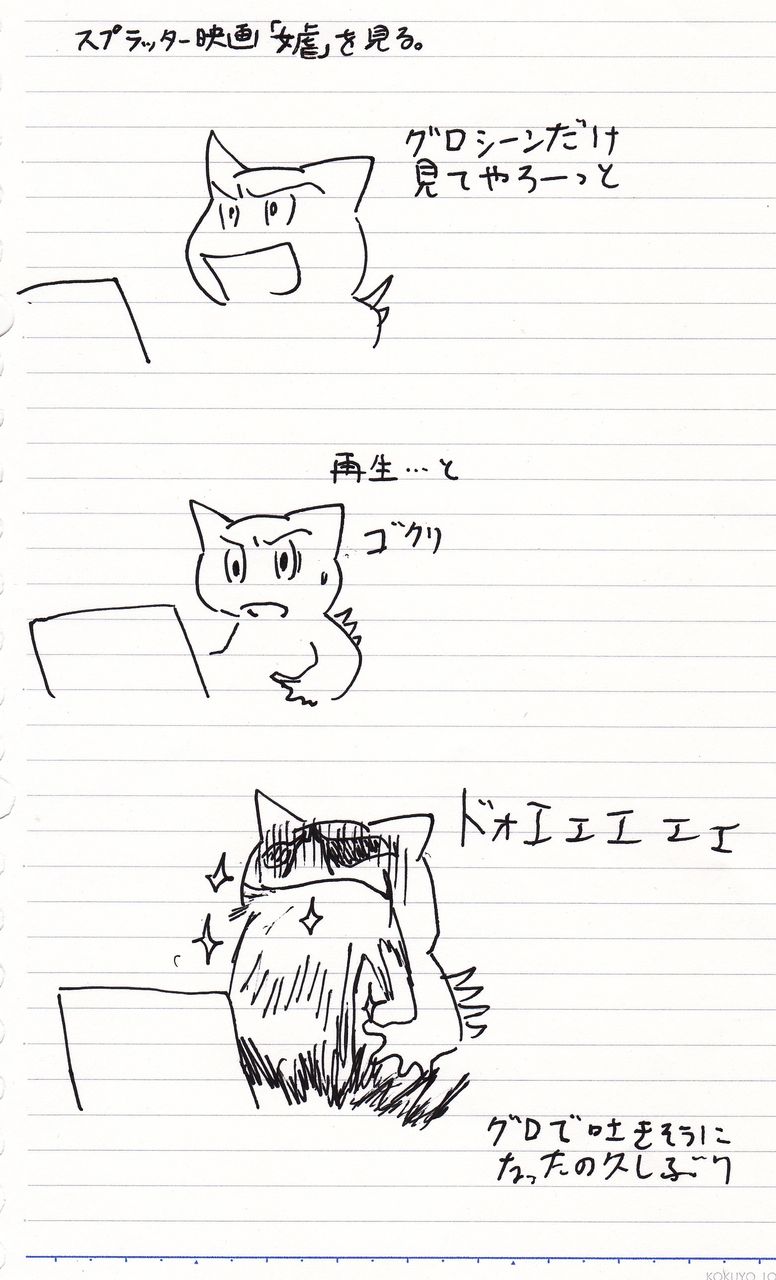 スプラッター映画「女虐」を見る。
グロシーンだけ
見てやろーっと
再生…と
ゴクリ
ドォエェエェェ
グロで吐きそうに
なったの久しぶり
KOKUYO